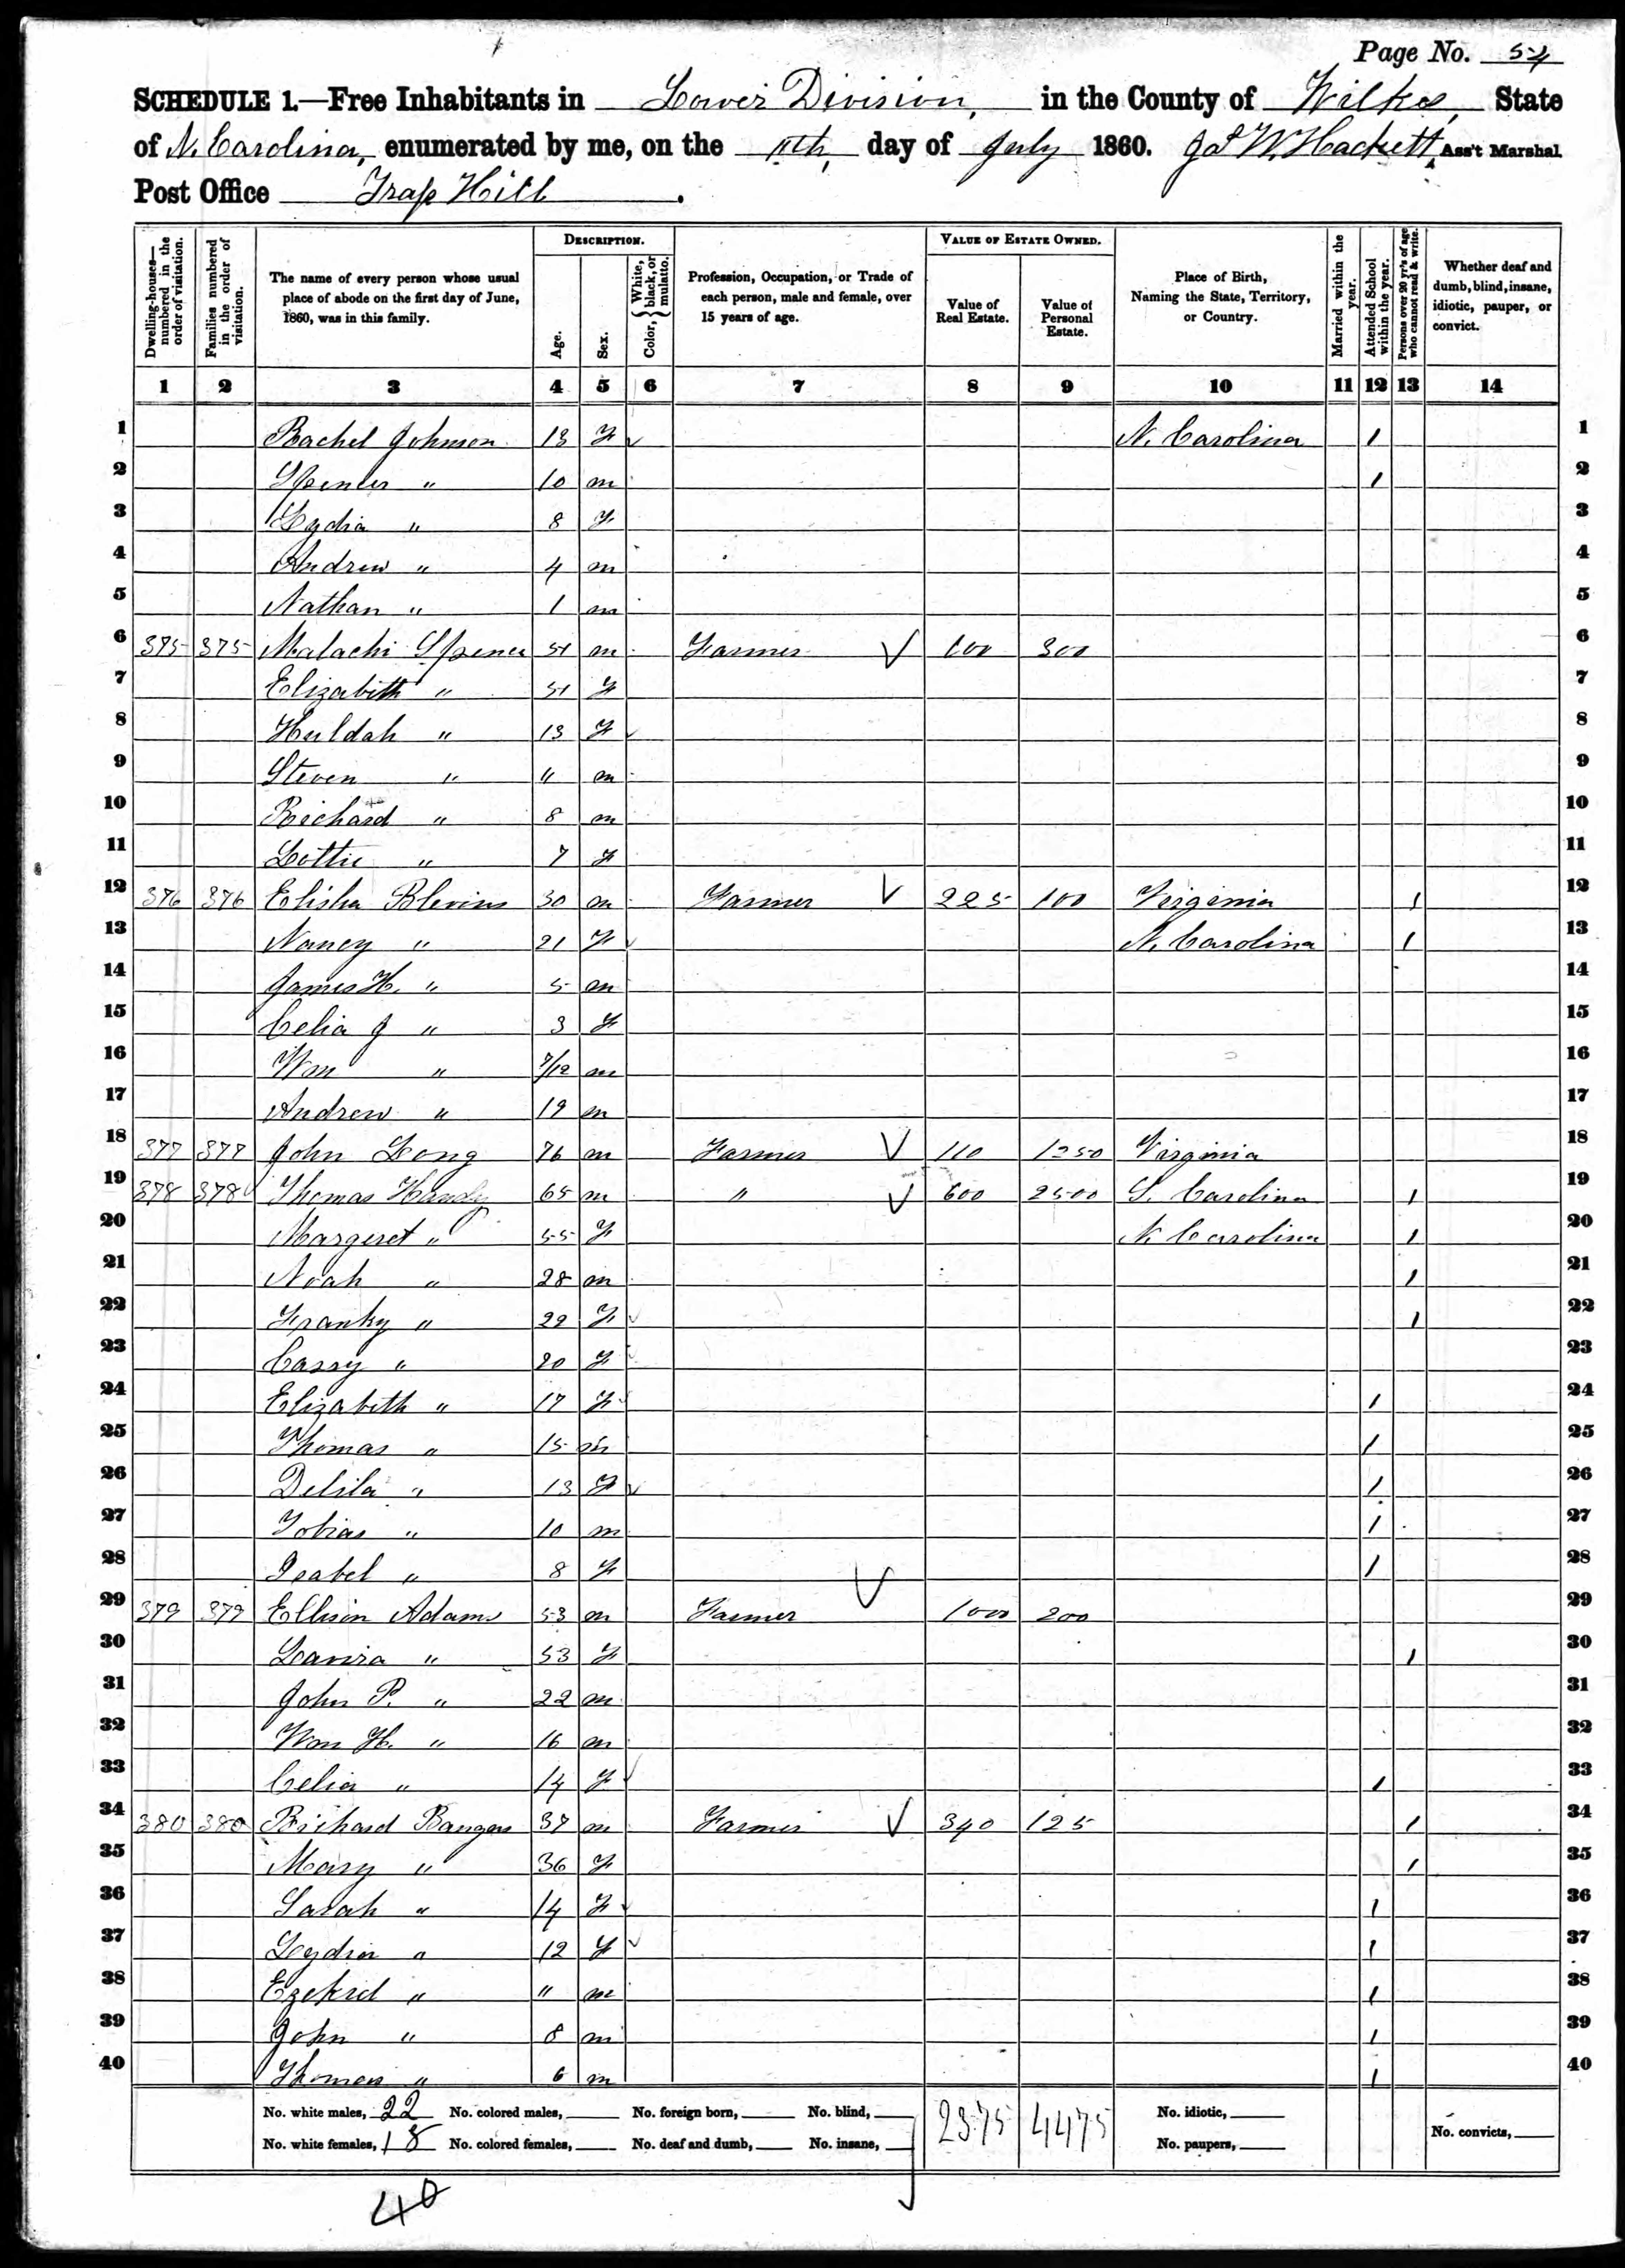 Page No. 54
SCHEDULE 1.—Free Inhabitants in Lower Division, in the County of Wilkes, State
of N. Carolina, enumerated by me, on the 11th, day of July 1860. Jas W. Hackett, Ass't Marshal.
Post Office Trap Hill.
Dwelling-houses—numbered in the order of visitation. Families numbered in the order of visitation. The name of every person whose usual place of abode on the first day of June, 1860, was in this family. DESCRIPTION. Age. Sex. Color, White, black, or mulatto. Profession, Occupation, or Trade of each person, male and female, over 15 years of age. VALUE OF ESTATE OWNED. Value of Real Estate. Value of Personal Estate. Place of Birth, Naming the State, Territory, or Country. Married within the year. Attended School within the year. Persons over 20 yr's of age who cannot read & write. Whether deaf and dumb, blind, insane, idiotic, pauper, or convict.
1 2 3 4 5 6 7 8 9 10 11 12 13 14
1 Rachel Johnson 13 F N. Carolina 1 1
2 Spencer " 10 m 1 2
3 Lydia " 8 F 3
4 Andrew " 4 m 4
5 Nathan " 1 m 5
6 375 375 Malachi Spencer 51 m Farmer 100 300 6
7 Elizabeth " 51 F 7
8 Huldah " 13 F 8
9 Steven " 11 m 9
10 Richard " 8 m 10
11 Lottie " 7 F 11
12 376 376 Elisha Blevins 30 m Farmer 225 100 Virginia 1 12
13 Nancy " 21 F N. Carolina 1 13
14 James H. " 5 m 14
15 Celia J " 3 F 15
16 Wm " 7/12 m 16
17 Andrew " 19 m 17
18 377 377 John Long 76 m Farmer 110 1250 Virginia 18
19 378 378 Thomas Handy 65 m " 600 2500 S. Carolina 1 19
20 Margeret " 55 F N. Carolina 1 20
21 Noah " 28 m 1 21
22 Franky " 22 F 1 22
23 Cassy " 20 F 23
24 Elizabeth " 17 F 1 24
25 Thomas " 15 m 1 25
26 Delila " 13 F 1 26
27 Tobias " 10 m 1 27
28 Isabel " 8 F 1 28
29 379 379 Ellison Adams 53 m Farmer 1000 200 29
30 Lavira " 53 F 1 30
31 John P. " 22 m 31
32 Wm H. " 16 m 32
33 Celia " 14 F 1 33
34 380 380 Richard Baugus 37 m Farmer 340 125 1 34
35 Mary " 36 F 1 35
36 Sarah " 14 F 1 36
37 Leydia " 12 F 1 37
38 Ezekiel " 11 m 1 38
39 John " 8 m 1 39
40 Thomas " 6 m 1 40
No. white males, 22 No. colored males, No. foreign born, No. blind, 2375 4475 No. idiotic,
No. white females, 18 No. colored females, No. deaf and dumb, No. insane, No. paupers, No. convicts,
40